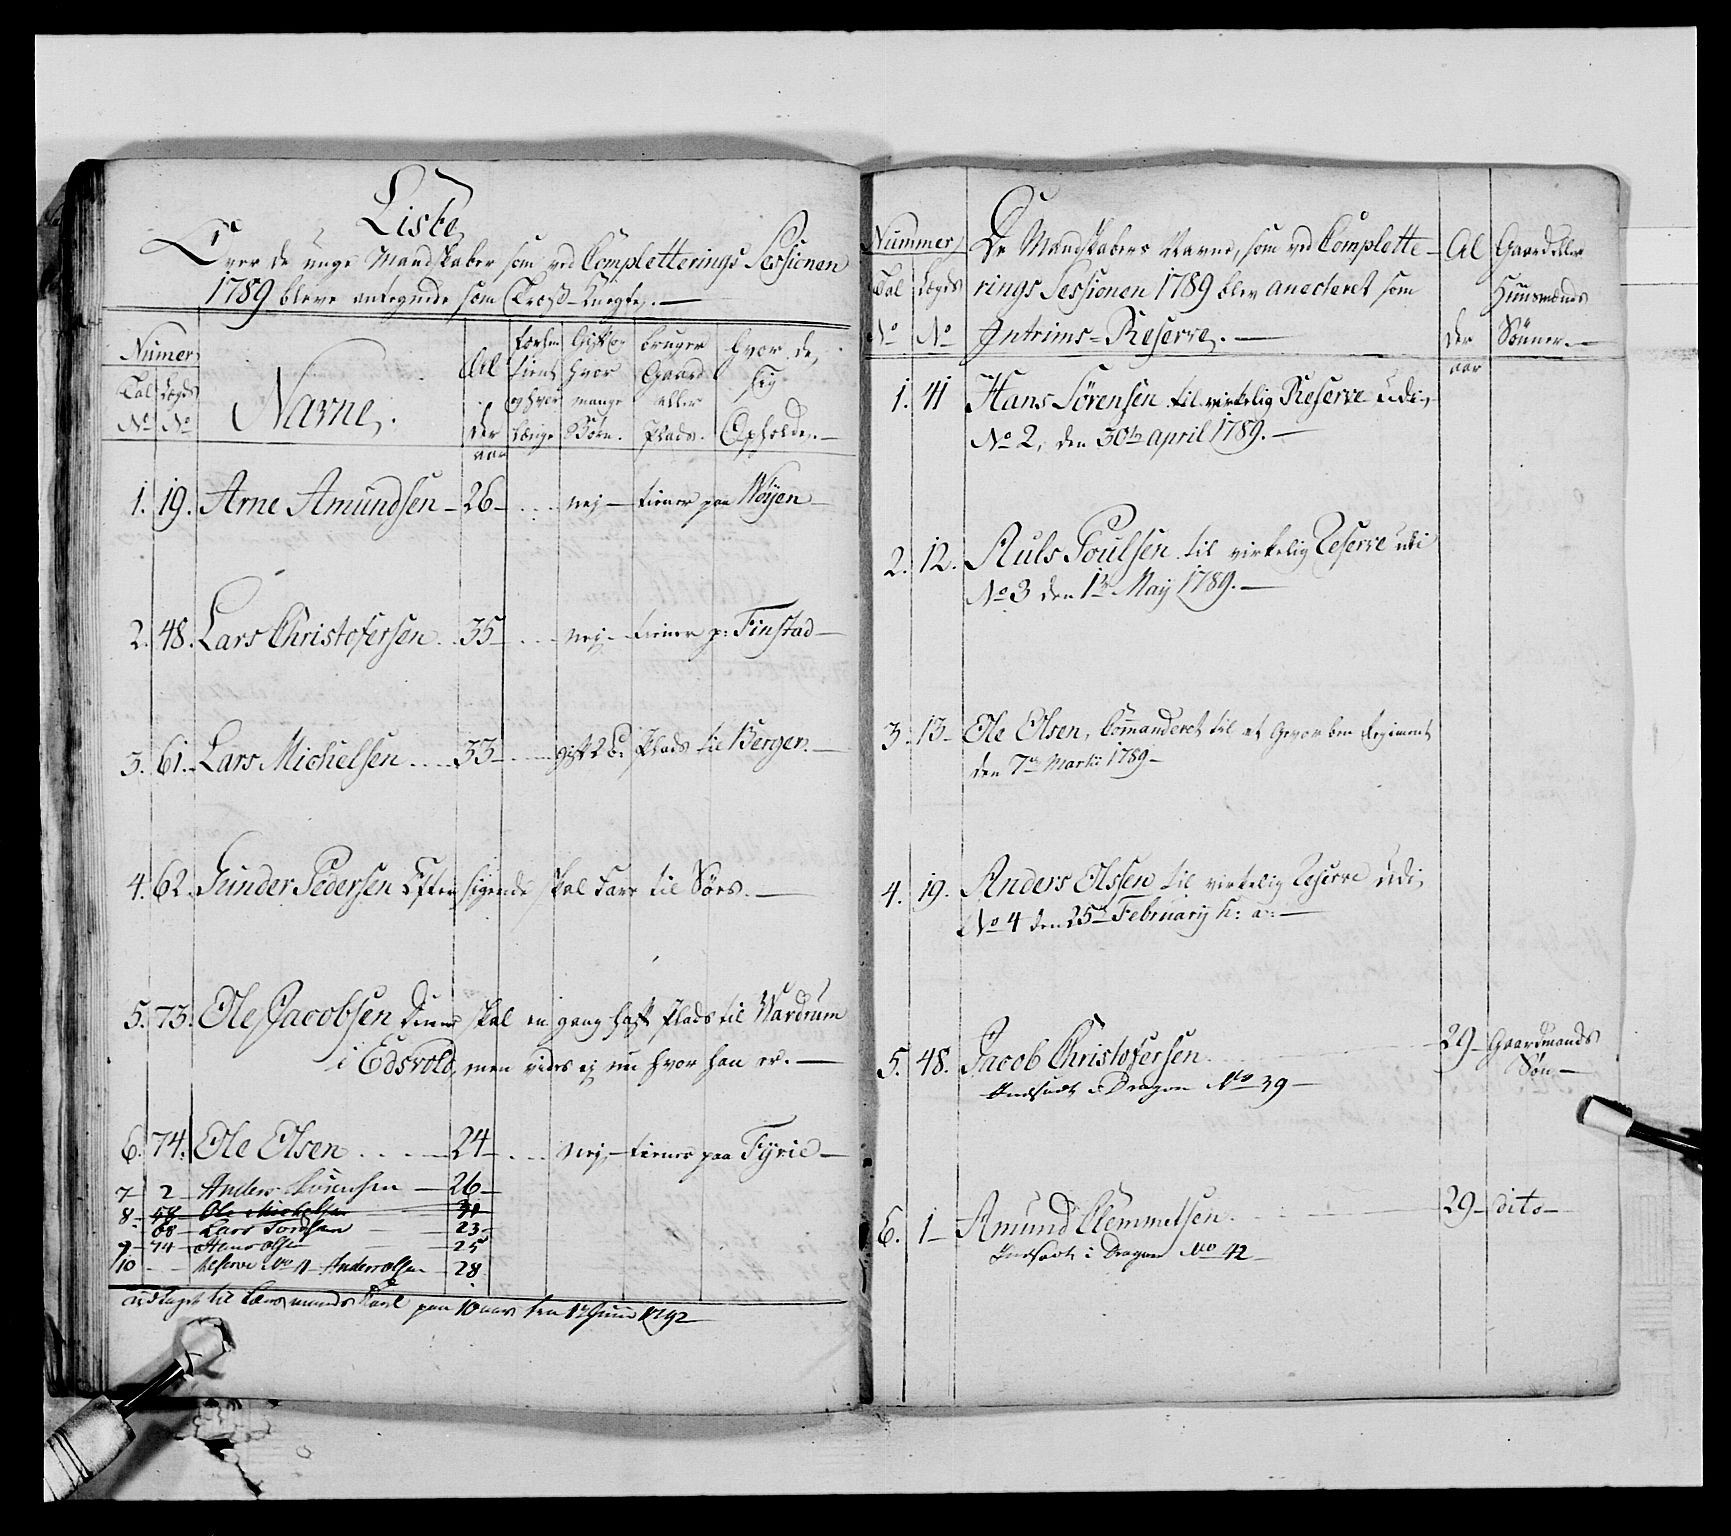 Liste
Over de unge Mandskaber som ved Completterings Sessionen
1789 bleve antegnede som Tros-Knegte.
Numer
Tal No
Lægds No
Navne.
Al der aar
og hvor længe
Gift og hvor mange Børn.
bruger Gaard eller Plads.
hvor de sig Opholde.
1. 19. Arne Amundsen - 26 - nej - tiener paa Nøyen
2. 48. Lars Christofersen. 35 - nej - tiener p: Finstad
3. 61. Lars Michelsen .... 33 - gift 2 B. Plads til Berger.
4. 62. Gunder Pedersen Efter sigende skal fare til Søes.
5. 73. Ole Jacobsen Denne skal en gang haft Plads til Wardrum
i Edsvold, men vides ej nu hvor han er.
6. 74. Ole Olsen .... 24 - nej - tiener paa Fyrie
7 - 2 - Anders Sørensen - 26
8 - 58 - Ole Michelsen
68 - Lars Tordsen - 23
9 - 74 - Hans Olsen - 25
10 - - Reserve No 11 Anders Olsen - 28
udtaget til Lænsmands Karl paa 10 aar den 17 Juni 1792
Nummer
Tal No
Lægds No
De Mandskabers Navne, som ved Complette-
rings Sessionen 1789 blev anecteret som
Intrims-Reserve.
Al der aar
Gaard eller Huusmands Sønner.
1. 41 Hans Sørensen til virkelig Reserve udi
No 2, den 30te april 1789.
2. 12. Ruls Poulsen til virkelig Reserve udi
No 3 den 1te May 1789.
3. 13. Ole Olsen, Commanderet til et Gevorben Regiment
den 7de Martii 1789
4. 19. Anders Olssen til virkelig Reserve udi
No 4 den 25de February h: a:
5. 48. Jacob Christofersen 29 - Gaardmands
Søn
Indsadt i Dragon No 39
6. 1 - Amund Clemmetsen 29 - dito
Indsadt i Dragon No 42